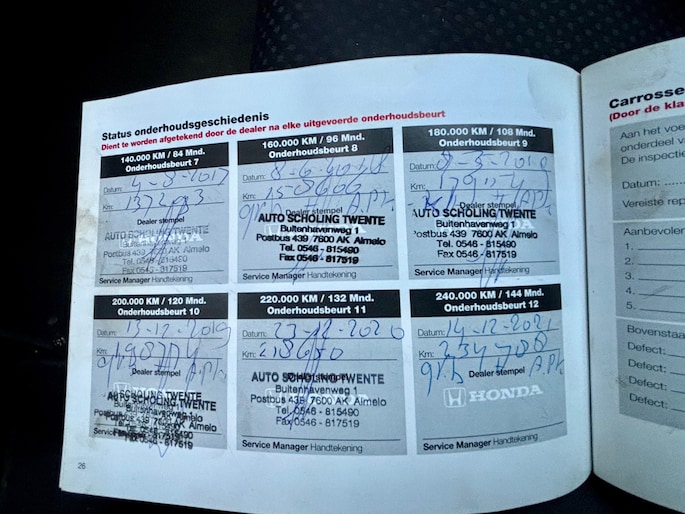 Status onderhoudsgeschiedenis
Dient te worden afgetekend door de dealer na elke uitgevoerde onderhoudsbeurt
140.000 KM / 84 Mnd.
Onderhoudsbeurt 7
Datum:
Km:
Dealer stempel
HONDA
AUTO SCHOLING TWENTE
Buitenhavenweg 1
Postbus 439 7600 AK Almelo
Tel. 0546 - 815490
Fax 0546 - 817519
Service Manager Handtekening
160.000 KM / 96 Mnd.
Onderhoudsbeurt 8
Datum:
Km:
grb A.P.K.
Dealer stempel
AUTO SCHOLING TWENTE
Buitenhavenweg 1
Postbus 439 7600 AK Almelo
Tel. 0546 - 815490
Fax 0546 - 817519
Service Manager Handtekening
180.000 KM / 108 Mnd.
Onderhoudsbeurt 9
Datum:
Km:
Dealer stempel
AUTO SCHOLING TWENTE
Buitenhavenweg 1
Postbus 439 7600 AK Almelo
Tel. 0546 - 815490
Fax 0546 - 817519
Service Manager Handtekening
200.000 KM / 120 Mnd.
Onderhoudsbeurt 10
Datum: 13-12-2019
Km:
Dealer stempel
AUTO SCHOLING TWENTE
Buitenhavenweg 1
Postbus 439 7600 AK Almelo
Tel. 0546 - 815490
Fax 0546 - 817519
Service Manager Handtekening
220.000 KM / 132 Mnd.
Onderhoudsbeurt 11
Datum: 23-12-2020
Km:
Dealer stempel
AUTO SCHOLING TWENTE
Buitenhavenweg 1
Postbus 439 7600 AK Almelo
Tel. 0546 - 815490
Fax 0546 - 817519
Service Manager Handtekening
240.000 KM / 144 Mnd.
Onderhoudsbeurt 12
Datum: 14-12-2021
Km: 234788
grb A.P.K.
Dealer stempel
HONDA
Service Manager Handtekening
26
Carrosse
(Door de kla
Aan het voe
onderdeel va
De inspectie
Datum:
Vereiste rep
Aanbevolen
1.
2.
3.
4.
5.
Bovenstaa
Defect:
Defect:
Defect:
Defect: